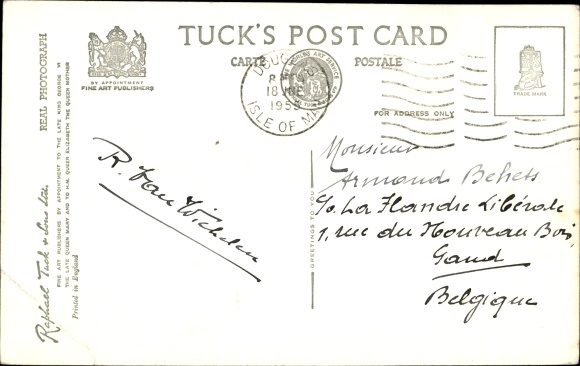 TUCK'S POST CARD
CARTE POSTALE
BY APPOINTMENT
FINE ART PUBLISHERS
DOUGLAS
18
195
ISLE OF MAN
TRADE MARK
FOR ADDRESS ONLY
REAL PHOTOGRAPH
Raphael Tuck & Sons Ltd.
FINE ART PUBLISHERS BY APPOINTMENT TO THE LATE KING GEORGE VI
THE LATE QUEEN MARY AND TO H.M. QUEEN ELIZABETH THE QUEEN MOTHER
Printed in England
GREETINGS TO YOU
R. Van
Monsieur
Armand Behets
c/o La Flandre Libérale
1, rue du Nouveau Bois
Gand
Belgique